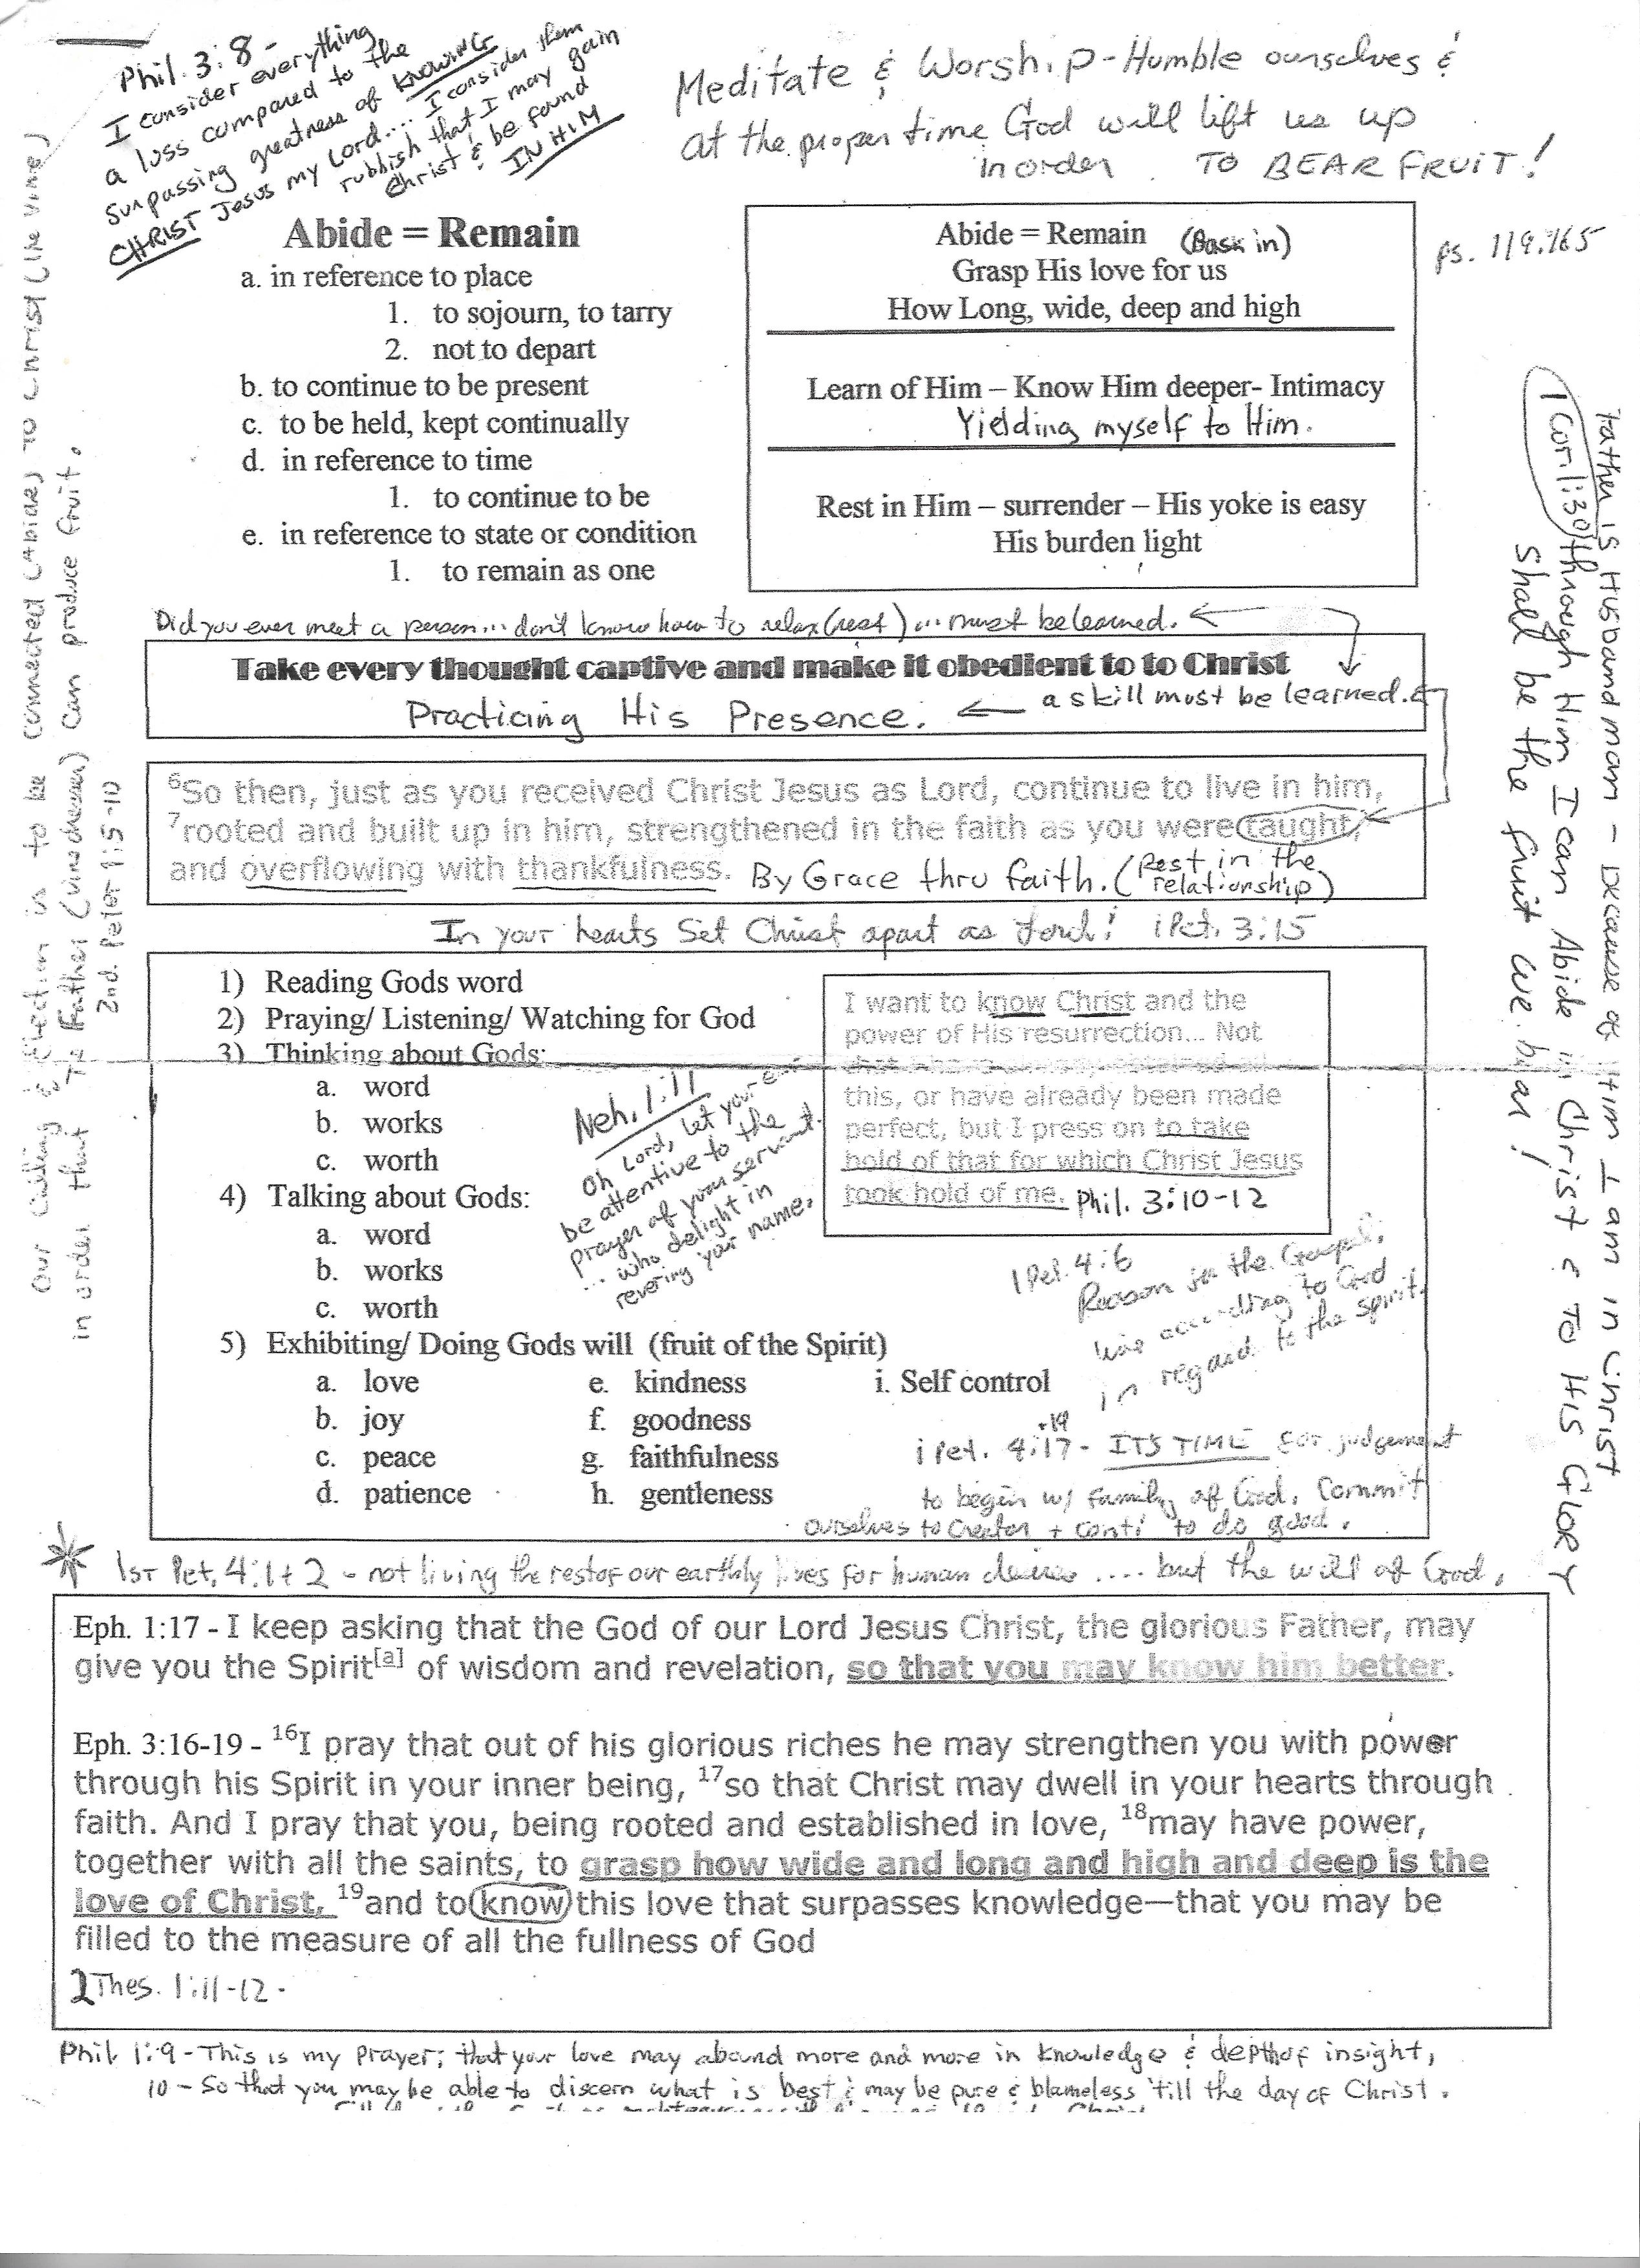 Phil. 3:8 -
I consider everything
a loss compared to the
surpassing greatness of KNOWING
CHRIST Jesus my Lord.... I consider them
rubbish that I may gain
Christ & be found
IN HIM
Meditate & Worship - Humble ourselves &
at the proper time God will lift us up
in order TO BEAR FRUIT!
Abide = Remain
a. in reference to place
1. to sojourn, to tarry
2. not to depart
b. to continue to be present
c. to be held, kept continually
d. in reference to time
1. to continue to be
e. in reference to state or condition
1. to remain as one
Abide = Remain (Bask in)
Grasp His love for us
How Long, wide, deep and high
Learn of Him – Know Him deeper- Intimacy
Yielding myself to Him.
Rest in Him – surrender – His yoke is easy
His burden light
Ps. 119:165
Did you ever meet a person... don't know how to relax (rest)... must be learned.
Take every thought captive and make it obedient to to Christ
Practicing His Presence. ← a skill must be learned.
6So then, just as you received Christ Jesus as Lord, continue to live in him,
7rooted and built up in him, strengthened in the faith as you were taught,
and overflowing with thankfulness. By Grace thru faith. (Rest in the
relationship)
In your hearts Set Christ apart as Lord! 1 Pet. 3:15
1) Reading Gods word
2) Praying/ Listening/ Watching for God
3) Thinking about Gods:
a. word
b. works
c. worth
4) Talking about Gods:
a. word
b. works
c. worth
5) Exhibiting/ Doing Gods will (fruit of the Spirit)
a. love
b. joy
c. peace
d. patience
e. kindness
f. goodness
g. faithfulness
h. gentleness
i. Self control
Neh. 1:11
Oh Lord, let your
be attentive to the
prayer of your servant.
... who delight in
revering your name.
I want to know Christ and the
power of His resurrection... Not
that I have already obtained all
this, or have already been made
perfect, but I press on to take
hold of that for which Christ Jesus
took hold of me. Phil. 3:10-12
1 Pet. 4:6
Reason for the Gospel.
live according to God
in regard to the spirit.
1 Pet. 4:17-19 - ITS TIME for judgement
to begin w/ family of God. Commit
ourselves to Creator + conti to do good.
* 1ST Pet. 4:1+2 - not living the rest of our earthly lives for human desires .... but the will of God.
Eph. 1:17 - I keep asking that the God of our Lord Jesus Christ, the glorious Father, may
give you the Spirit[a] of wisdom and revelation, so that you may know him better.
Eph. 3:16-19 - 16I pray that out of his glorious riches he may strengthen you with power
through his Spirit in your inner being, 17so that Christ may dwell in your hearts through
faith. And I pray that you, being rooted and established in love, 18may have power,
together with all the saints, to grasp how wide and long and high and deep is the
love of Christ, 19and to know this love that surpasses knowledge—that you may be
filled to the measure of all the fullness of God
2 Thes. 1:11-12 -
Phil. 1:9 - This is my prayer; that your love may abound more and more in knowledge & depth of insight,
10 - So that you may be able to discern what is best & may be pure & blameless 'till the day of Christ.
Our calling & election is to be connected (Abide) to Christ (the vine)
in order that The Father (vinedresser) can produce fruit.
2nd. Peter 1:5-10
Father is Husbandman - Because of Him I am in Christ
1 Cor. 1:30 through Him I can Abide in Christ & TO HIS GLORY
shall be the fruit we bear!